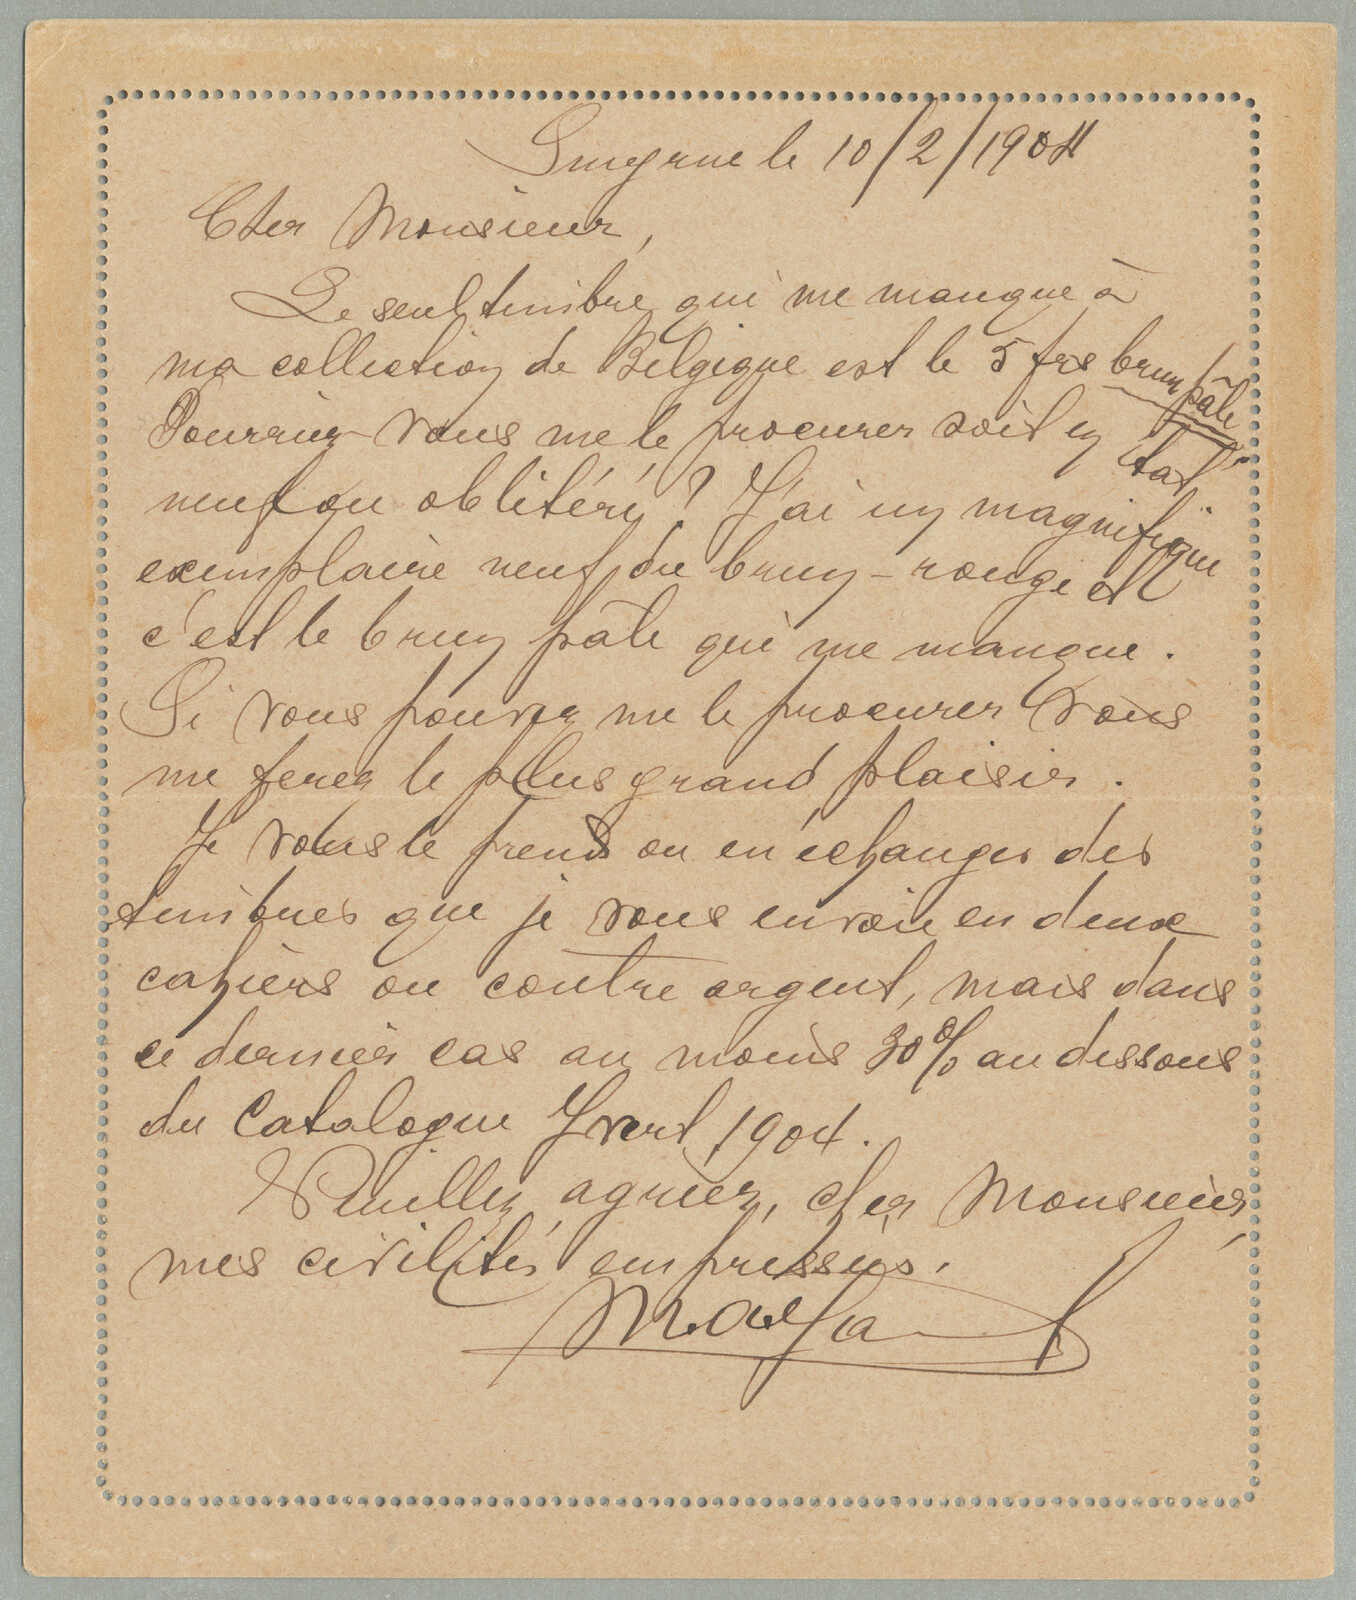 Smyrne le 10/2/1904
Cher Monsieur,
Le seul timbre qui me manque à
ma collection de Belgique est le 5 frs brun pâle
Pourriez-vous me le procurer soit en état
neuf ou oblitéré? J'ai un magnifique
exemplaire neuf du brun-rouge et
c'est le brun pâle qui me manque.
Si vous pouvez me le procurer vous
me ferez le plus grand plaisir.
Je vous le prends ou en échanges des
timbres que je vous envoie en deux
cahiers ou contre argent, mais dans
ce dernier cas au moins 30% au dessous
du Catalogue Yvert 1904.
Veuillez agréer, cher Monsieur,
mes civilités empressées.